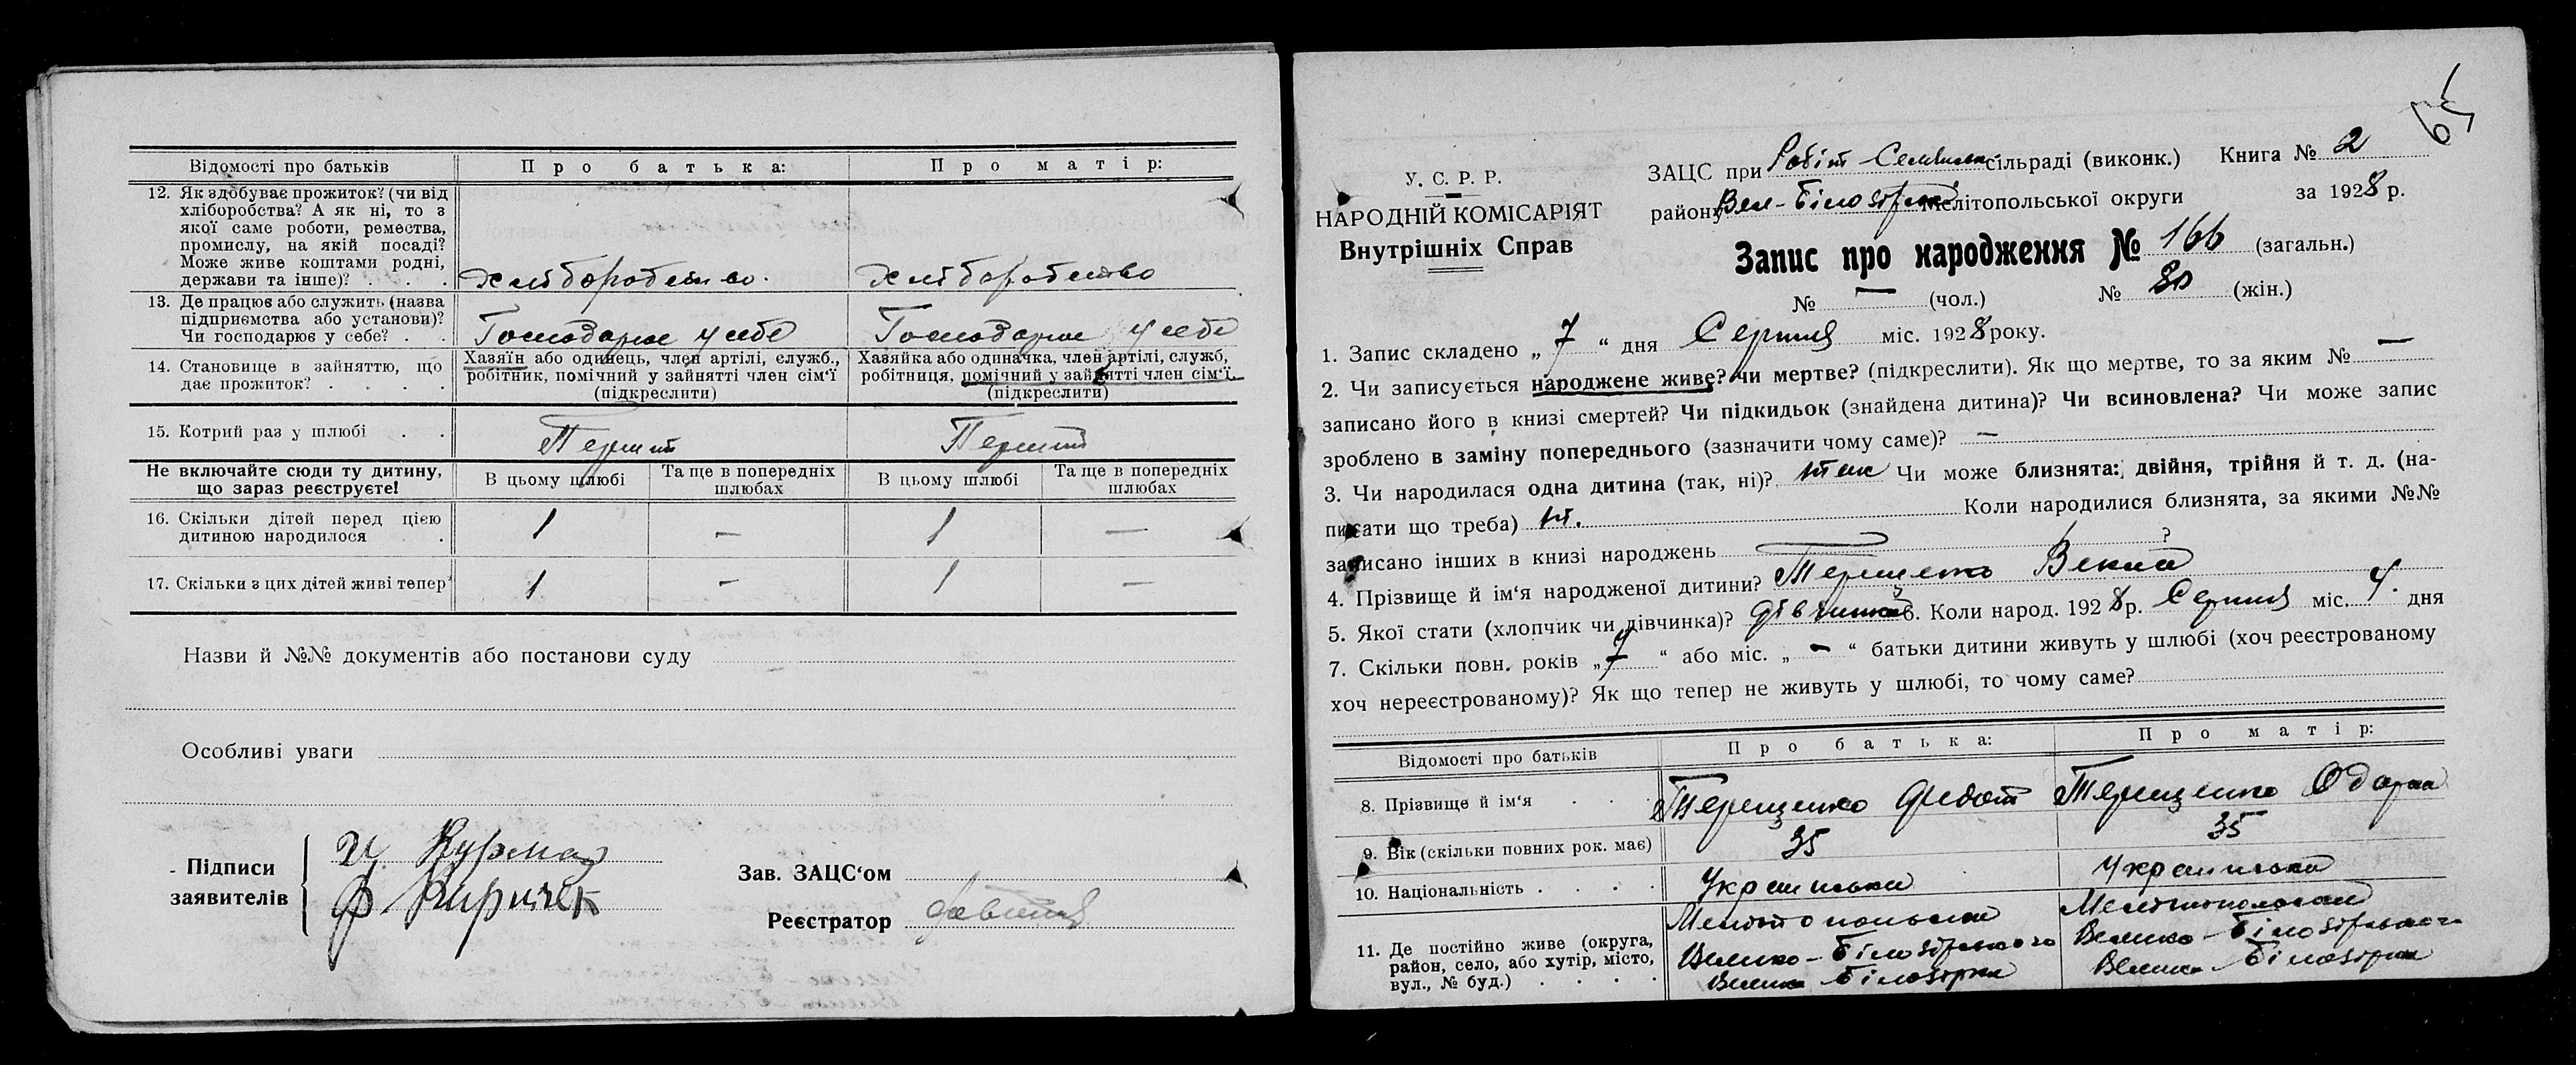 Відомості про батьків
Про батька:
Про матір:
12. Як здобуває прожиток? (чи від
хліборобства? А як ні, то з
якої саме роботи, ремества,
промислу, на якій посаді?
Може живе коштами родні,
держави та інше)? . . .
Хліборобство.
Хліборобство
13. Де працює або служить (назва
підприємства або установи)?
Чи господарює у себе? . .
Господарює у себе
Господарює у себе
14. Становище в зайняттю, що
дає прожиток? . . .
Хазяїн або одинець, член артілі, служб.,
робітник, помічний у зайнятті член сім'ї
(підкреслити)
Хазяйка або одиначка, член артілі, служб,
робітниця, помічний у зайнятті член сім'ї.
(підкреслити)
15. Котрий раз у шлюбі . .
Перший
Перший
Не включайте сюди ту дитину,
що зараз реєструєте!
В цьому шлюбі
Та ще в попередніх
шлюбах
В цьому шлюбі
Та ще в попередніх
шлюбах
16. Скільки дітей перед цією
дитиною народилося .
1 — 1 —
17. Скільки з цих дітей живі тепер
1 — 1 —
Назви й №№ документів або постанови суду
Особливі уваги
Підписи
заявителів
Ф Киричек
Зав. ЗАЦС'ом
Реєстратор
65
У. С. Р. Р.
НАРОДНІЙ КОМІСАРІЯТ
Внутрішніх Справ
ЗАЦС при сільраді (виконк.) Книга № 2
району Вел-Білозірськ Мелітопольської округи за 1928 р.
Запис про народження № 166 (загальн.)
№ — (чол.) № 80 (жін.)
1. Запис складено „ 7 “ дня Серпня міс. 1928 року.
2. Чи записується народжене живе? чи мертве? (підкреслити). Як що мертве, то за яким № —
записано його в книзі смертей? Чи підкидьок (знайдена дитина)? Чи всиновлена? Чи може запис
зроблено в заміну попереднього (зазначити чому саме)? —
3. Чи народилася одна дитина (так, ні)? так Чи може близнята: двійня, трійня й т. д. (на-
писати що треба) Коли народилися близнята, за якими №№
записано інших в книзі народжень ?
4. Прізвище й ім'я народженої дитини? Терещенко
5. Якої стати (хлопчик чи дівчинка)? дівчинка 6. Коли народ. 1928 р. Серпня міс. 4. дня
7. Скільки повн. років „ 7 “ або міс. „ — “ батьки дитини живуть у шлюбі (хоч реєстрованому
хоч нереєстрованому)? Як що тепер не живуть у шлюбі, то чому саме?
Відомості про батьків
Про батька:
Про матір:
8. Прізвище й ім'я . . .
Терещенко Федот
Терещенко Одарка
9. Вік (скільки повних рок. має)
35
35
10. Національність . . . .
Українська
Українська
11. Де постійно живе (округа,
район, село, або хутір, місто,
вул., № буд.) . . . .
Мелітопольськ
Велико-Білозірського
Велика Білозірка
Мелітопольськ
Велико-Білозірського
Велика Білозірка